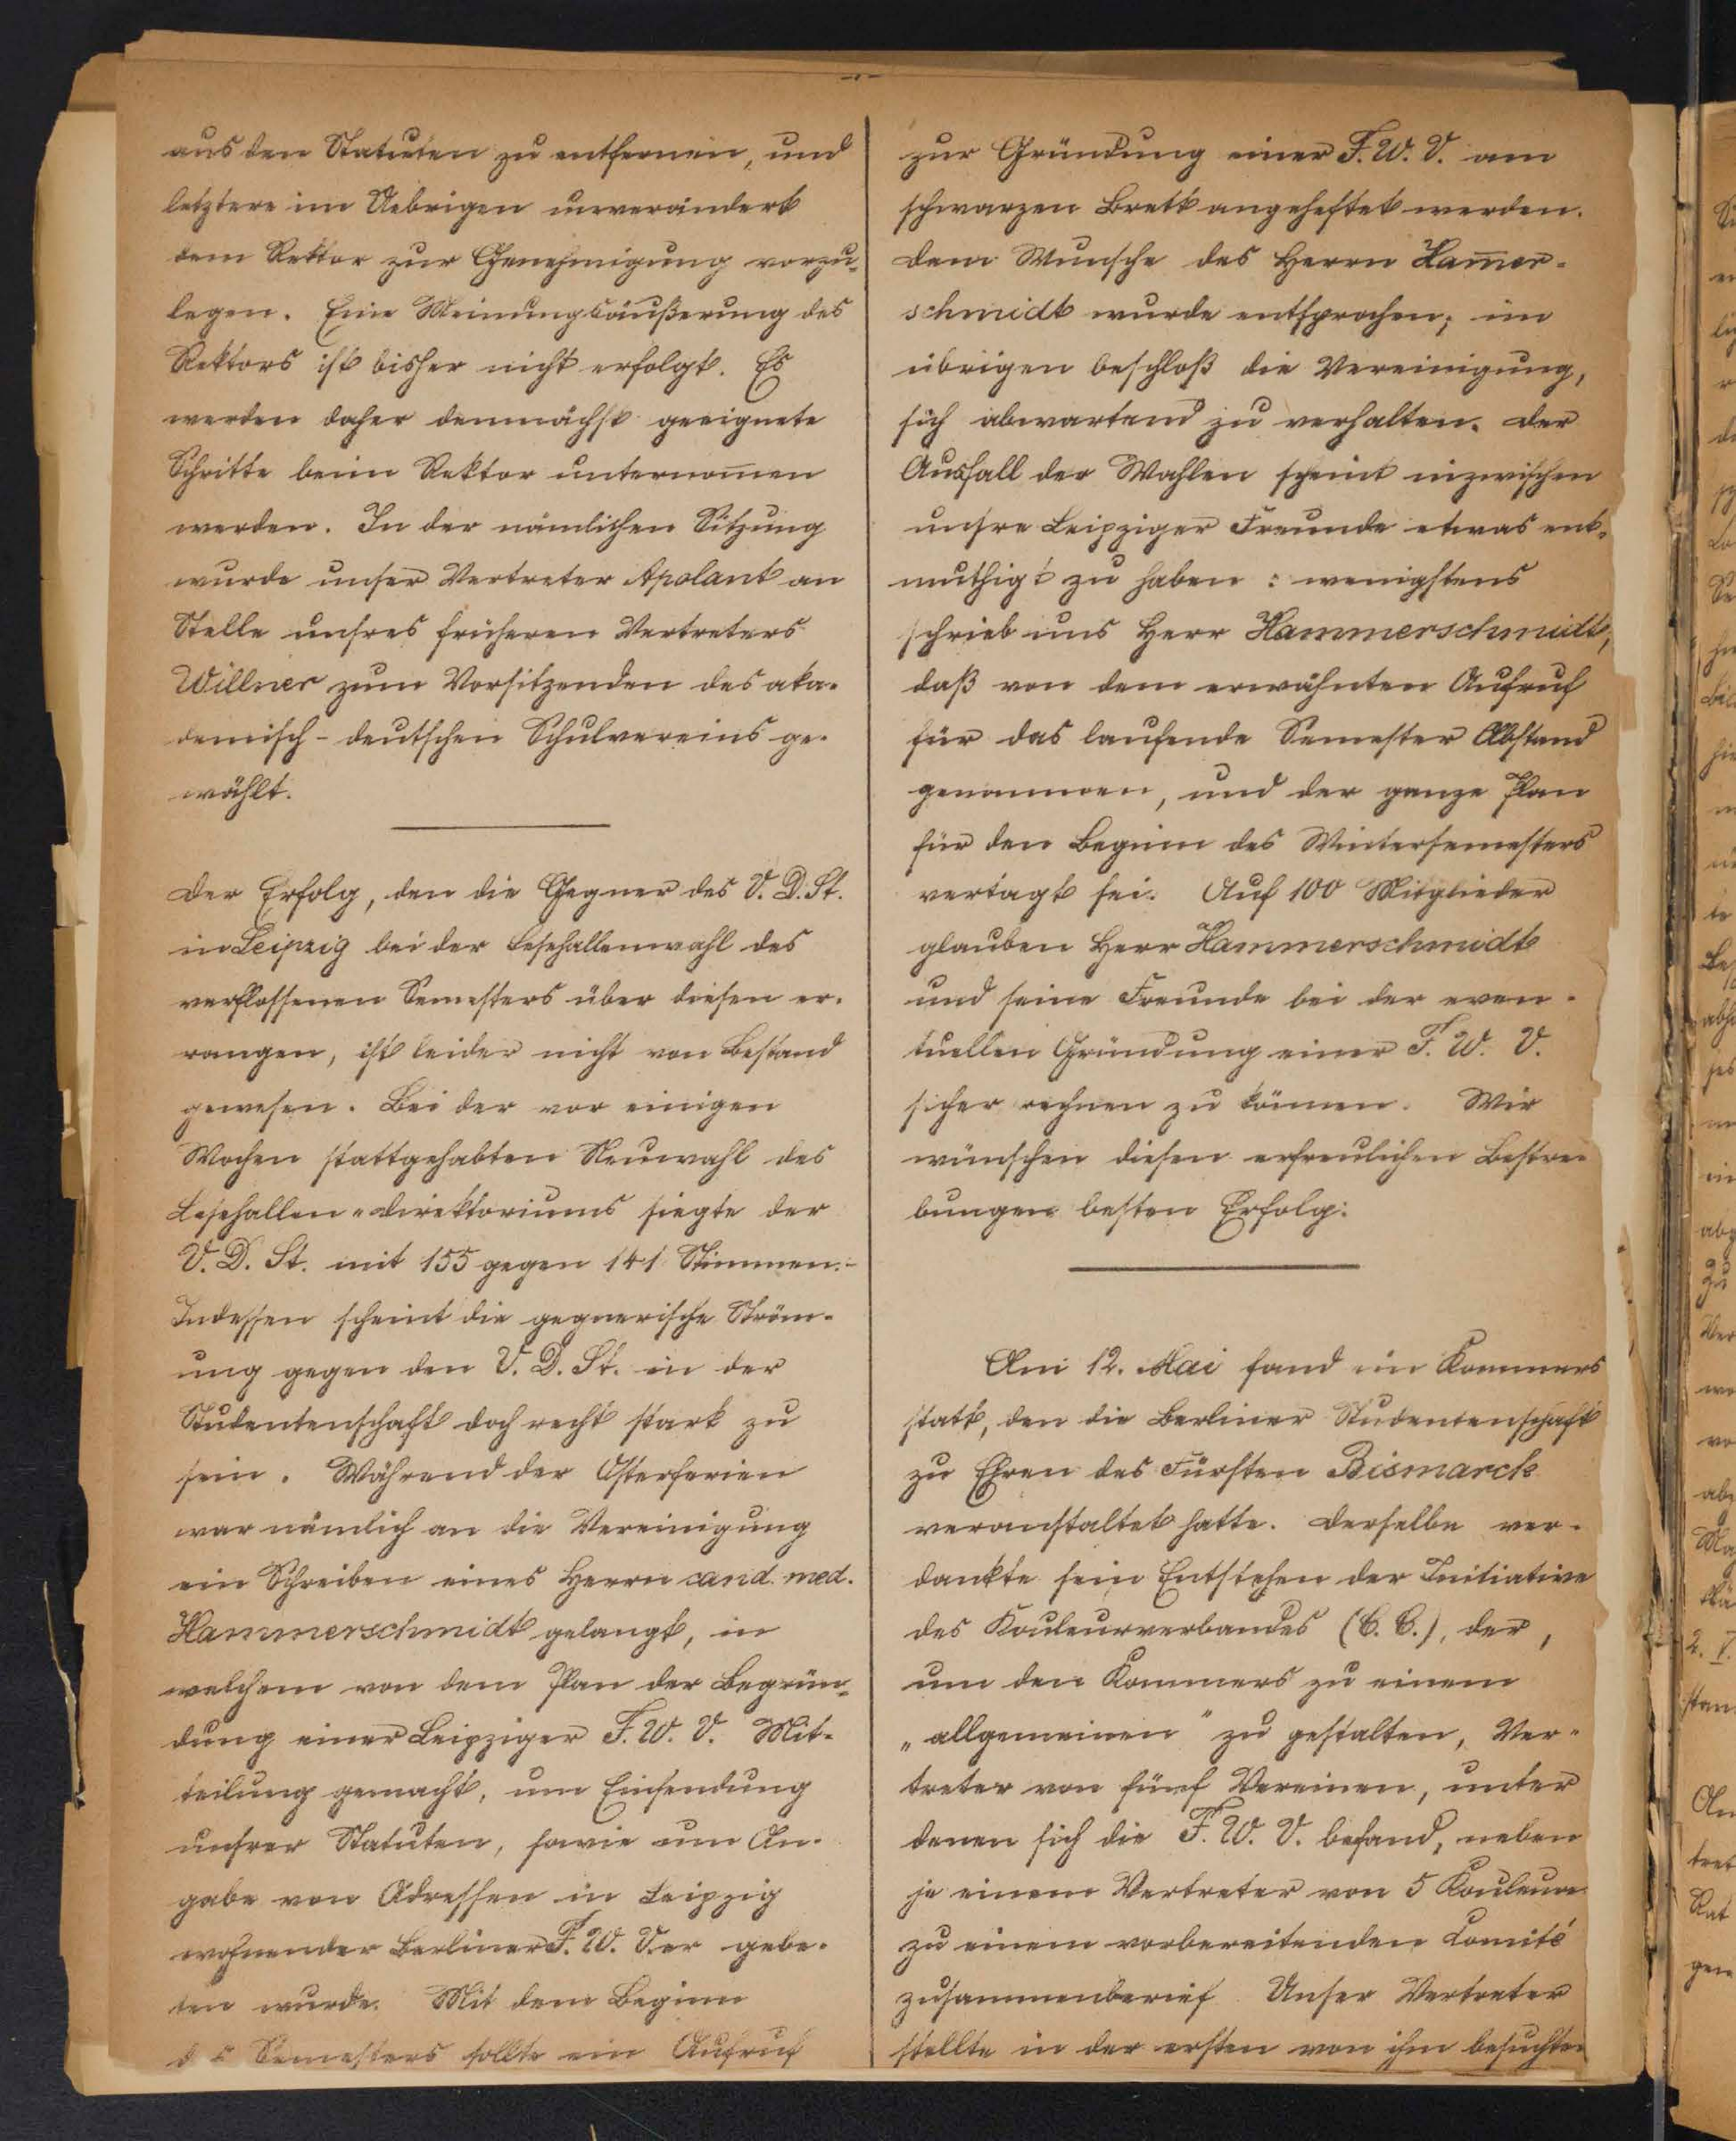 aus den Statuten zu entfernen, und
letztere im Uebrigen unverändert
dem Rektor zur Genehmigung vorzu-
legen. Eine Meinungsäußerung des
Rektors ist bisher nicht erfolgt. Es
werden daher demnächst geeignete
Schritte beim Rektor unternom̄en
werden. In der nämlichen Sitzung
wurde unser Vertreter Apolant an
Stelle unsres früheren Vertreters
Willner zum Vorsitzenden des aka-
demisch-deutschen Schulvereins ge-
wählt.
Der Erfolg, den die Gegner des V. D. St.
in Leipzig bei der Lesehallenwahl des
verflossenen Semesters über diesen er-
rangen, ist leider nicht von Bestand
gewesen. Bei der vor einigen
Wochen stattgehabten Neuwahl des
Lesehallen-Direktoriums siegte der
V. D. St. mit 155 gegen 141 Stimmen.-
Indessen scheint die gegnerische Ström-
ung gegen den V. D. St. in der
Studentenschaft doch recht stark zu
sein. Während der Osterferien
war nämlich an die Vereinigung
ein Schreiben eines Herrn cand. med.
Hammerschmidt gelangt, in
welchem von dem Plan der Begrün-
dung einer Leipziger F. W. V. Mit-
teilung gemacht, um Einsendung
unsrer Statuten, sowie um An-
gabe von Adressen in Leipzig
wohnender Berliner F. W. Ver gebe-
ten wurde. Mit dem Beginn
des Semesters sollte ein Aufruf
zur Gründung einer F. W. V. am
schwarzen Brett angeheftet werden.
Dem Wunsche des Herrn Ham̄er-
schmidt wurde entsprochen; im
übrigen beschloß die Vereinigung,
sich abwartend zu verhalten. Der
Ausfall der Wahlen scheint inzwischen
unsre Leipziger Freunde etwas ent-
muthigt zu haben: wenigstens
schrieb uns Herr Hammerschmidt,
daß von dem erwähnten Aufruf
für das laufende Semester Abstand
genommen, und der ganze Plan
für den Beginn des Wintersemesters
vertagt sei. Auf 100 Mitglieder
glauben Herr Hammerschmidt
und seine Freunde bei der even-
tuellen Gründung einer F. W. V.
sicher rechnen zu können. Wir
wünschen diesen erfreulichen Bestre-
bungen besten Erfolg.
Am 12. Mai fand ein Kommers
statt, den die Berliner Studentenschaft
zu Ehren des Fürsten Bismarck
veranstaltet hatte. Derselbe ver-
dankte sein Entstehen der Initiative
des Kouleurverbandes (C. C.), der,
um den Kommers zu einem
„allgemeinen" zu gestalten, Ver-
treter von fünf Vereinen, unter
denen sich die F. W. V. befand, neben
je einem Vertreter von 5 Kouleuren
zu einem vorbereitenden Comité
zusammenberief. Unser Vertreter
stellte in der ersten von ihm besuchten